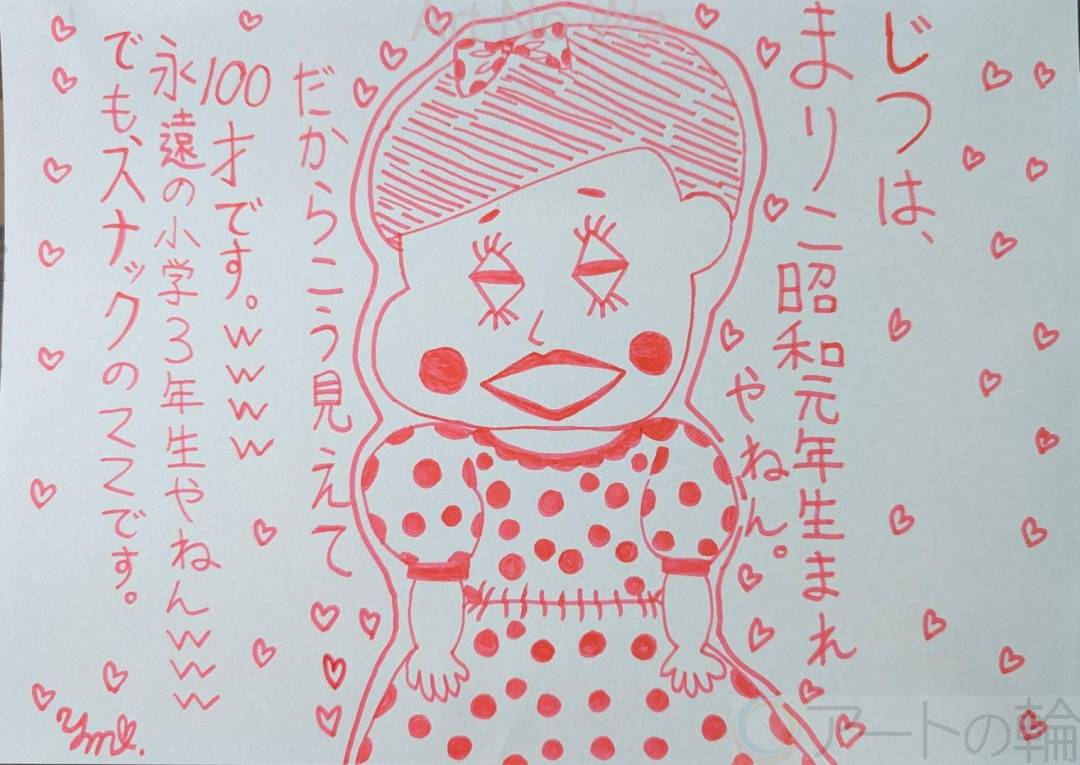 じつは、
まりこ昭和元年生まれ
やねん。
だからこう見えて
100才です。wwww
永遠の小学3年生やねんwww
でも、スナックのママです。
Art No Wa
アートの輪